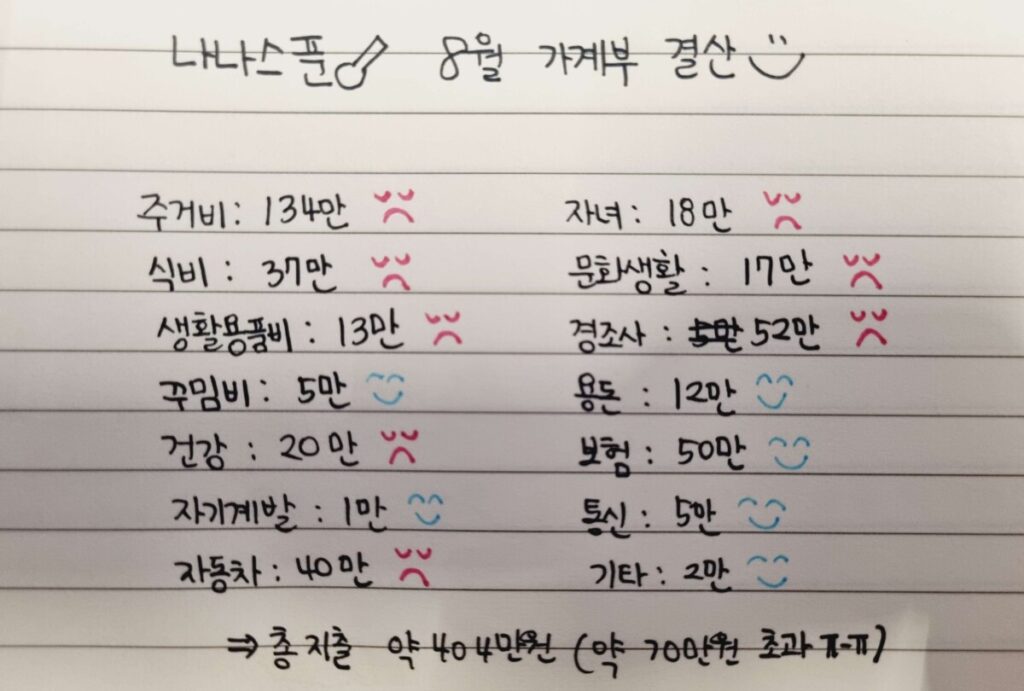 나나스푼 8월 가계부 결산
주거비 : 134만
식비 : 37만
생활용품비 : 13만
꾸밈비 : 5만
건강 : 20만
자기계발 : 1만
자동차 : 40만
자녀 : 18만
문화생활 : 17만
경조사 : 5만 52만
용돈 : 12만
보험 : 50만
통신 : 5만
기타 : 2만
⇒ 총 지출 약 404만원 (약 70만원 초과 ㅠ-ㅠ)